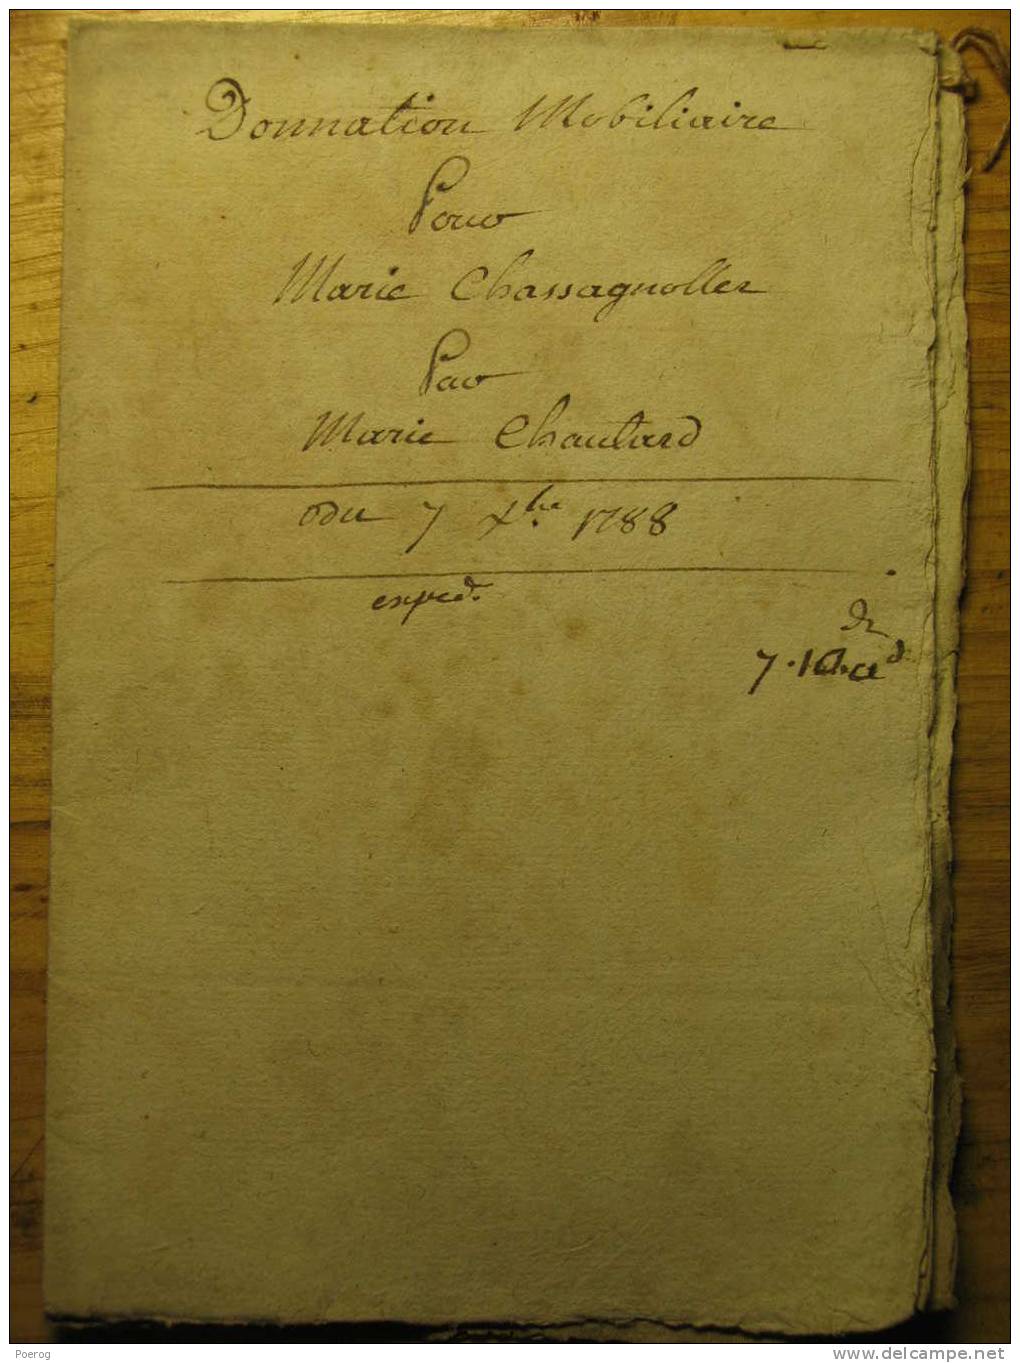 Donnation Mobiliaire
Pour
Marie Chassagnolles
Par
Marie Chautard
du 7 Xbre 1788
exped.
7.10.
Poerog
www.delcampe.net